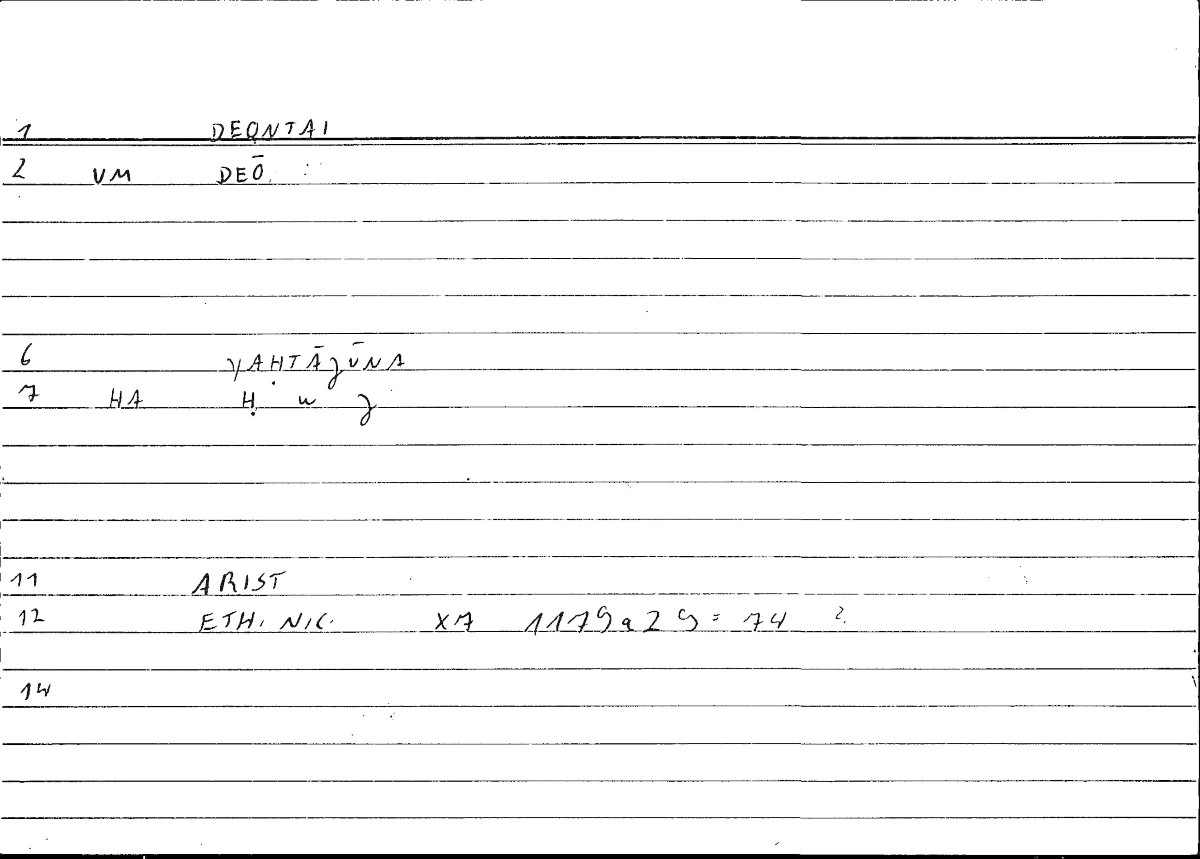 1 DEONTAI
2 VM DEŌ :
6 YAḤTĀǦŪNA
7 HA Ḥ w ǧ
11 ARIST
12 ETH. NIC. X7 1179a29 = 74 2.
14